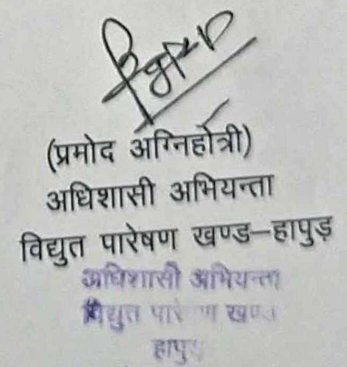 (प्रमोद अग्निहोत्री)
अधिशासी अभियन्ता
विद्युत पारेषण खण्ड–हापुड़
अधिशासी अभियन्ता
खण्ड